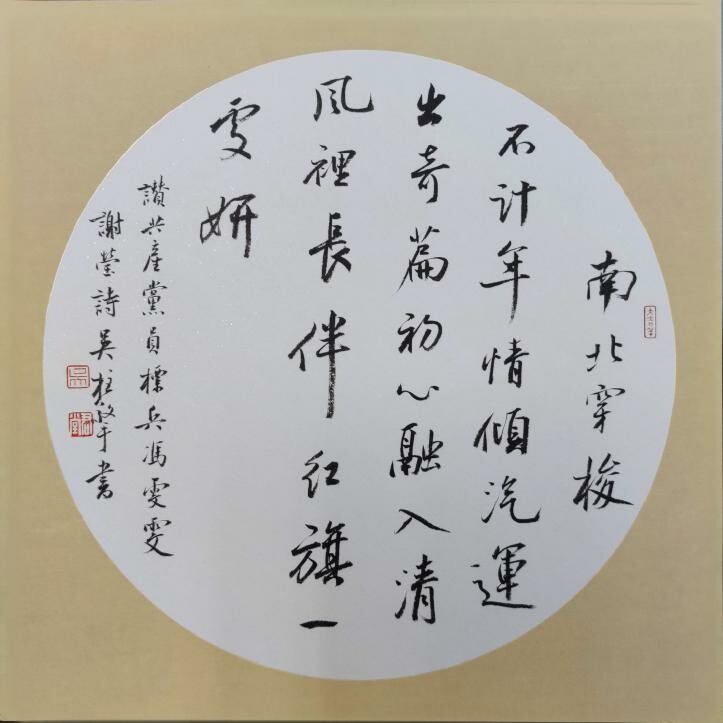 南北穿梭
不計年情傾汽運
出奇篇初心融入清
風裡長伴紅旗一
雯妍
讚共產黨員標兵馮雯雯
謝瑩詩吳柱書